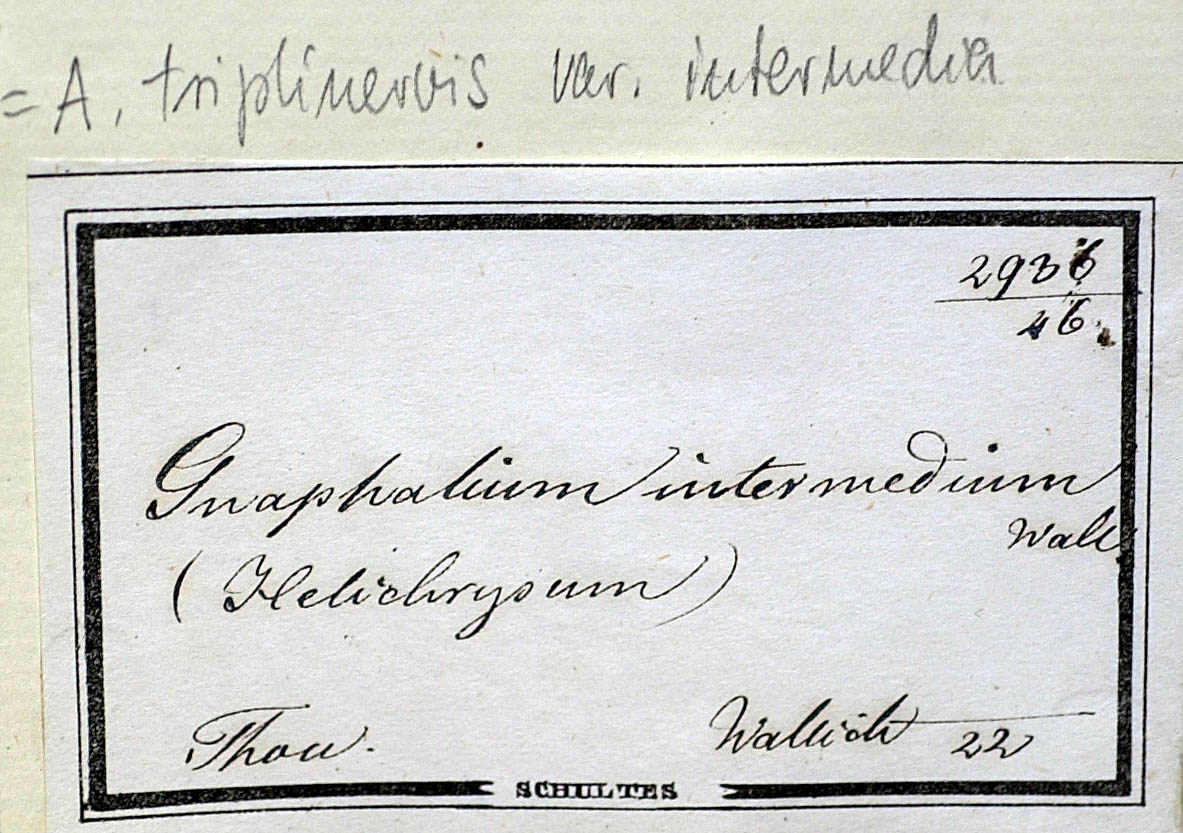 = A. triplinervis var. intermedia
2936
46.
Gnaphalium intermedium
Wall
(Helichrysum)
Thou.
Wallich 22
SCHULTES